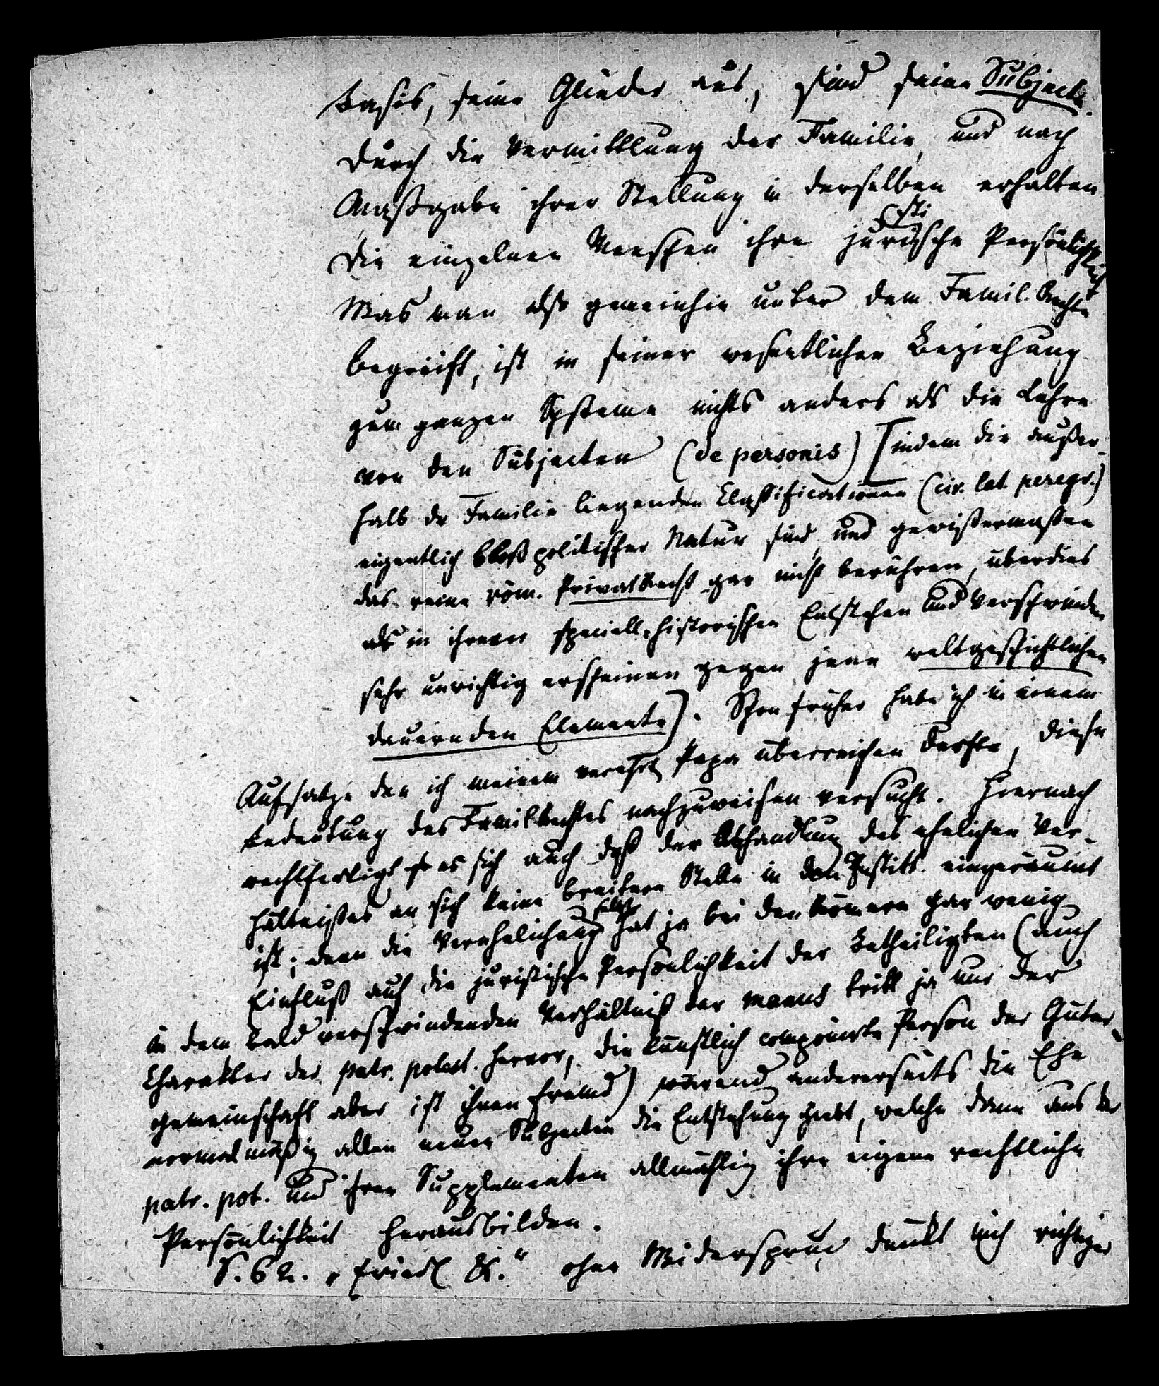 Basis, seine Glieder aus, sind seine Subjecte.
Durch die Vermittlung der Familie, und nach
Maßgabe ihrer Stellung in derselben erhalten
die einzelnen Menschen ihre juristische Persönlichkeit
Was man also gemeinhin unter dem Famil. Rechte
begreift, ist in seiner wesentlichen Beziehung
zum ganzen Systeme nichts anders als die Lehre
von den Subjecten (de personis) [indem die außer-
halb der Familie liegenden Classificationen (civ. lat. peregr.)
eigentlich bloß politischer Natur sind, und gewissermaßen
das reine röm. Privatrecht gar nicht berühren, überdies
als in ihrem speciell-historischen Entstehen und Verschwinden
sehr unwichtig erscheinen gegen jene weltgeschichtlichen
dauernden Elemente]. Schon früher habe ich in einem
Aufsatze den ich meinem verehrt. Papa überreichen durfte, diese
Bedeutung des Familienrechtes nachzuweisen versucht. Hiernach
rechtfertigt es sich auch daß der Abhandlung des ehelichen Ver-
hältnißes an sich keine breitere Stelle in den Instit. eingeräumt
ist; denn die Verehelichung selbst hat ja bei den Römern gar wenig
Einfluß auf die juristische Persönlichkeit der Betheiligten (auch
in dem bald verschwindenden Verhältniß der manus tritt ja nur der
Charakter der patr. potest. hervor, die künstlich componirte Person der Güter-
gemeinschaft aber ist ihnen fremd) während andererseits die Ehe
normalmäßig allen neuen Subjecten die Entstehung giebt, welche dann aus der
patr. pot. und ihren Supplementen allmählig ihre eigene rechtliche
Persönlichkeit herausbilden.
S. 62. „ &." ohne Widerspruch dünkt mich richtiger